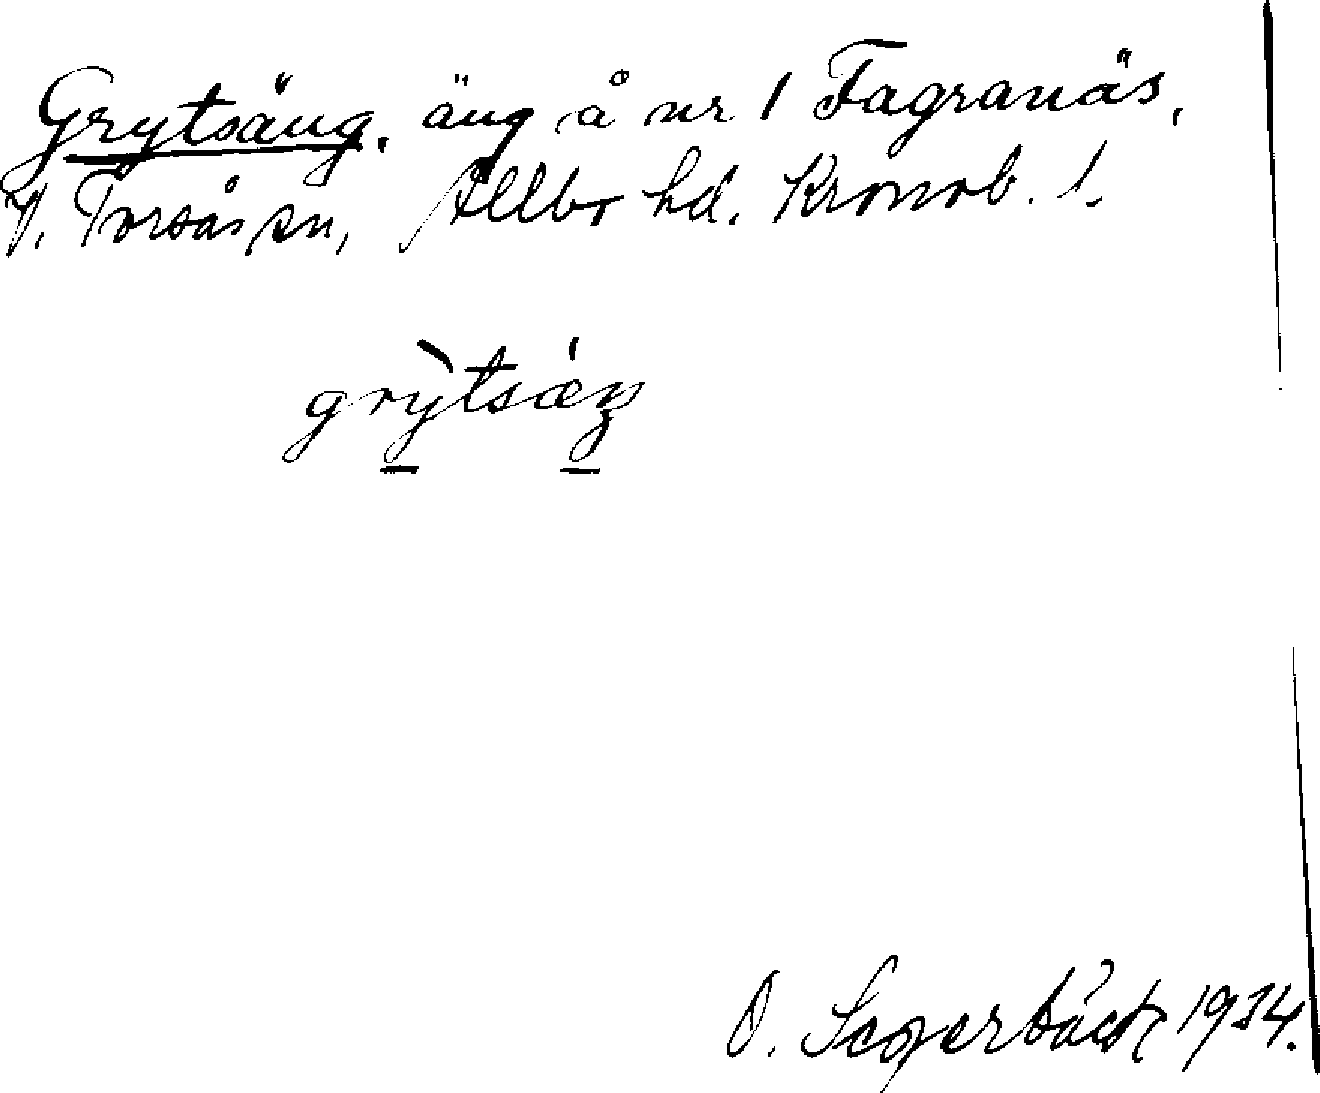 Grytsäng, äng å nr 1 Fagranäs,
V. Torsås sn, Allbo hd. Kronob. l.
grỳtsæ̀ŋ
O. Segerbäck 1934.